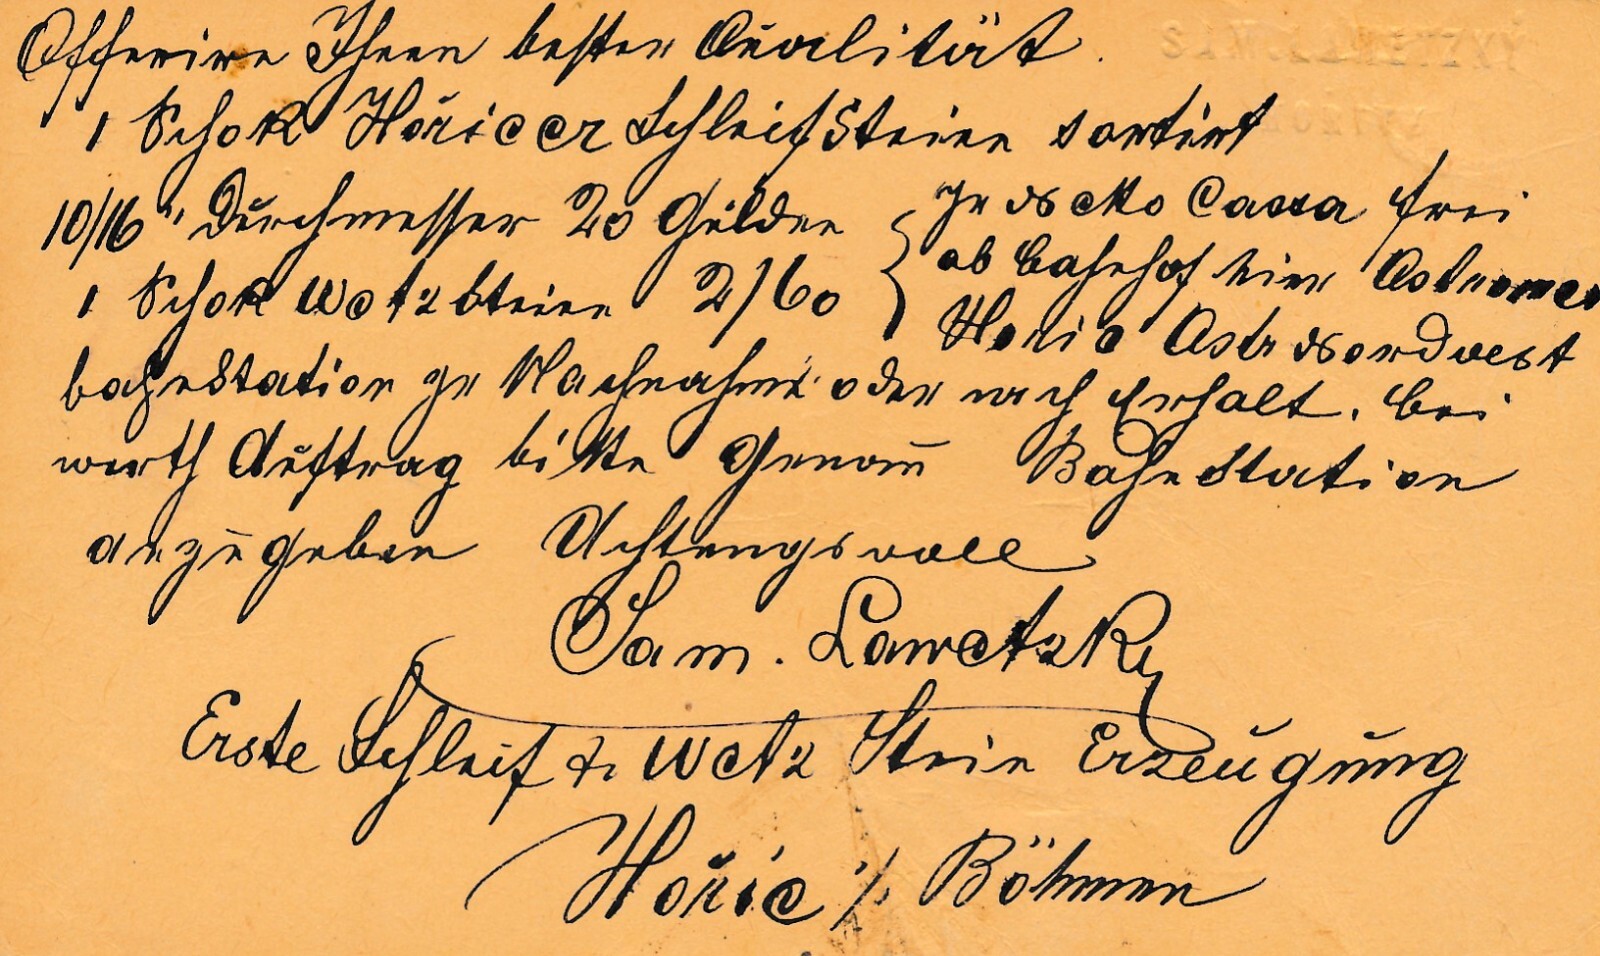 Offerire Ihnen bester Qualität.
1 Schok Hořicer Schleifsteine sortirt
10/16" Durchmesser 20 Gulden
1 Schok Wetzsteine 2/60
per Netto Cassa frei
ab Bahnhof hier
Horic Ostr Nordwest
bahnstation per Nachnahme oder nach Erhalt. bei
werth Auftrag bitte genau Bahnstation
anzugeben Achtungsvoll
Sam. Lawetzky
Erste Schleif & Wetz Stein Erzeugung
Hořic i/ Böhmen